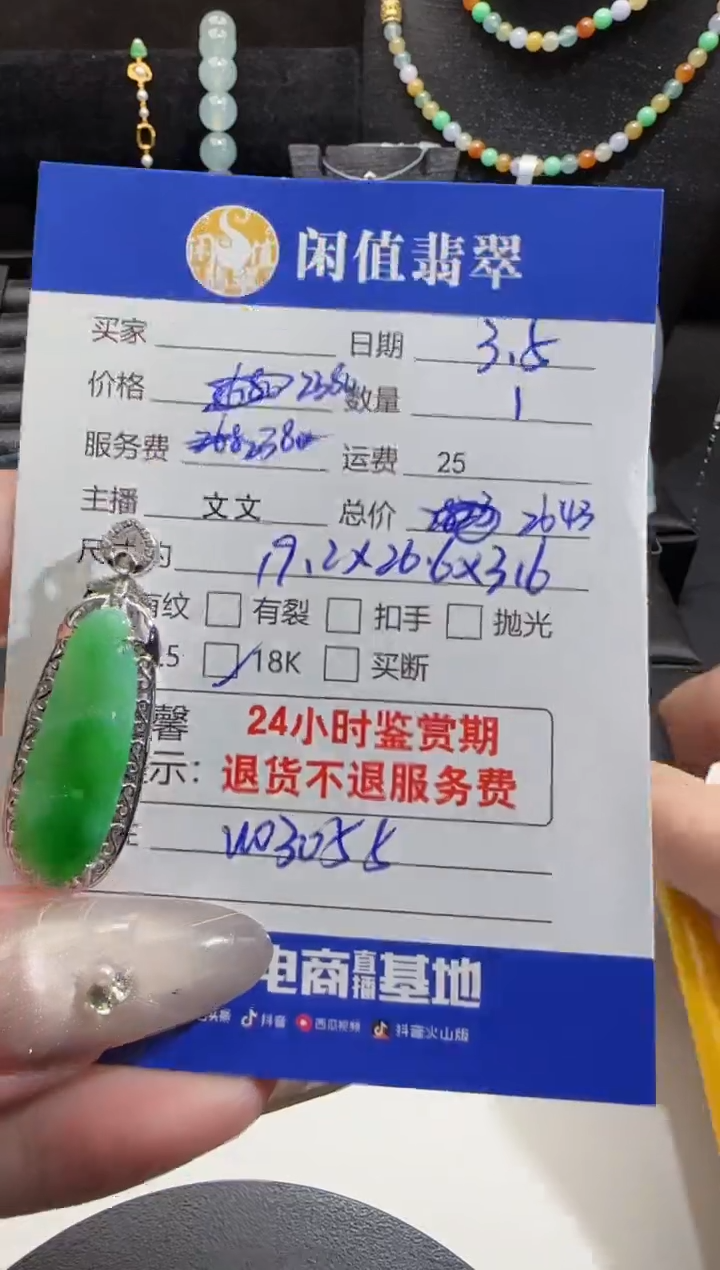 闲值翡翠
买家 日期 3.5
价格 2380 数量 1
服务费 238 运费 25
主播 文文 总价 2643
19.2×26.6×3.6
有裂 扣手 抛光
18K 买断
24小时鉴赏期
示：退货不退服务费
电商直播基地
抖音 西瓜视频 抖音火山版